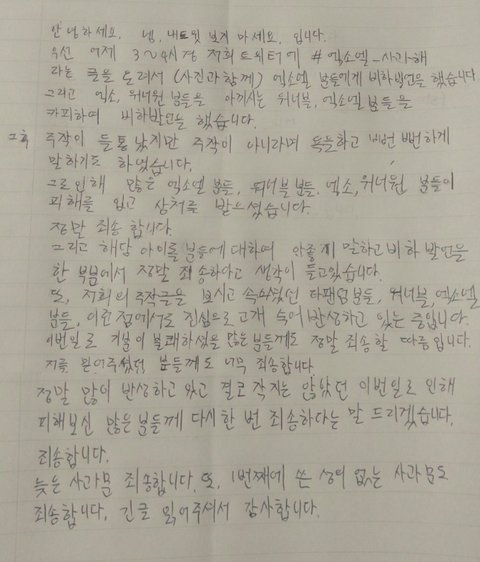 안녕하세요. 넵, 내트윗 보지 마세요. 입니다.
우선 어제 3~4시경 저희 트위터에 #엑소엘_사과해
라는 글을 올려서 (사진과 함께) 엑소엘 분들에게 비하발언을 했습니다
그리고 엑소, 워너원 분들을 아끼시는 워너블, 엑소엘 분들을
카피하여 비하발언을 했습니다.
그후 주작이 들통났지만 주작이 아니라며 욕을하고 뻔뻔하게
말하기도 하였습니다.
그로인해 많은 엑소엘 분들, 워너블 분들, 엑소, 워너원 분들이
피해를 입고 상처를 받으셨습니다.
정말 죄송합니다.
그리고 해당 아이돌 분들에 대하여 안좋게 말하고 비하 발언을
한 부분에서 정말 죄송하다고 생각이 들고있습니다.
또, 저희의 주작글을 보시고 속으셨던 타팬덤분들, 워너블, 엑소엘
분들, 이런 점에서도 진심으로 고개 숙여 반성하고 있는 중입니다.
이번일로 기분이 불쾌하셨을 많은 분들께도 정말 죄송할 따름입니다.
저를 믿어주셨던 분들께도 너무 죄송합니다
정말 많이 반성하고 있고 결코 작지는 않았던 이번일로 인해
피해보신 많은 분들께 다시 한 번 죄송하다는 말 드리겠습니다.
죄송합니다.
늦은 사과문 죄송합니다. 또, 1번째에 쓴 성의 없는 사과문도
죄송합니다. 긴글 읽어주셔서 감사합니다.